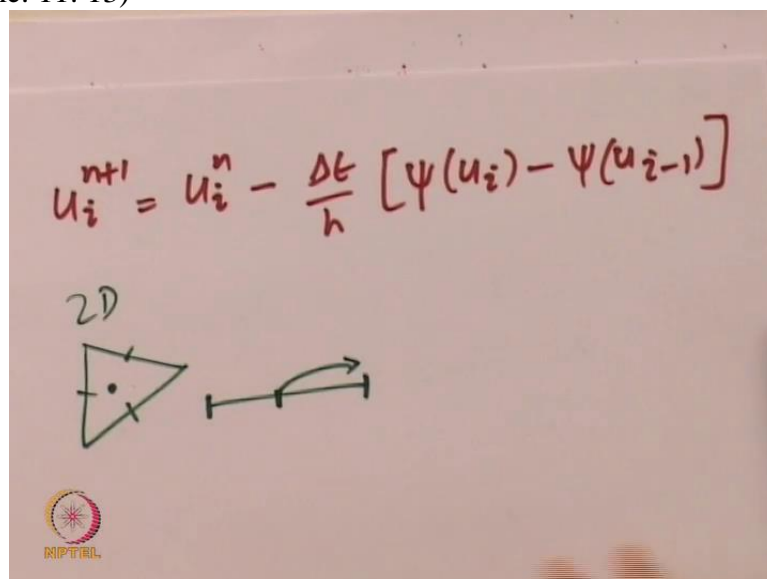 ne. 11: 13)
u_i^{n+1} = u_i^n - \frac{Δt}{h} [ψ(u_i) - ψ(u_{i-1})]
2D
NPTEL